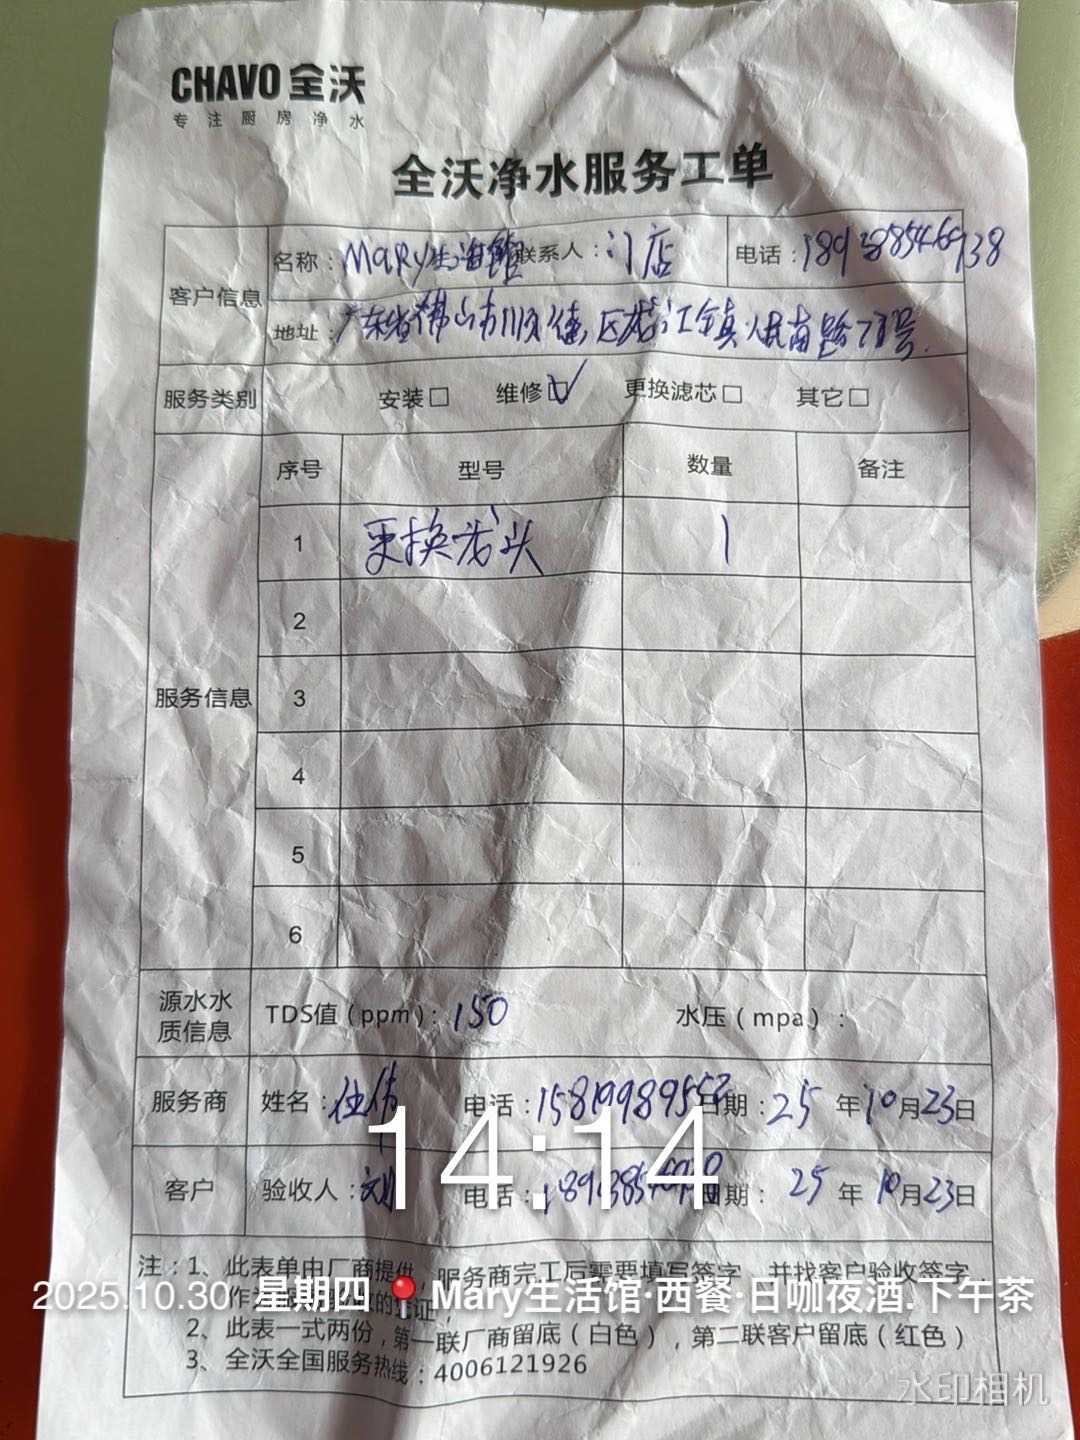 CHAVO 全沃
专注厨房净水
全沃净水服务工单
客户信息 名称：MaRy生活馆 联系人：门店 电话：
地址：广东省佛山市顺德区 镇人民南路 号
服务类别 安装□ 维修☑ 更换滤芯□ 其它□
服务信息 序号 型号 数量 备注
1 更换 头 1
2
3
4
5
6
源水水质信息 TDS值（ppm）：150 水压（mpa）：
服务商 姓名： 电话：15819989552 日期：25 年 10 月 23 日
14:14
客户 验收人：刘 电话： 日期：25 年 10 月 23 日
注：1、此表单由厂商提供，服务商完工后需要填写签字，并找客户验收签字
2025.10.30 星期四 Mary生活馆·西餐·日咖夜酒.下午茶
2、此表一式两份，第一联厂商留底（白色），第二联客户留底（红色）
3、全沃全国服务热线：4006121926
水印相机